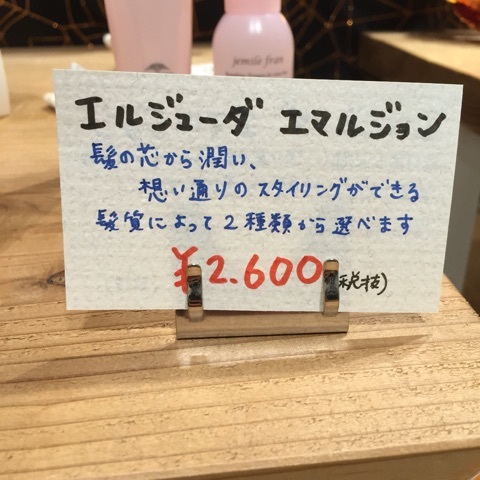 jemile fran
エルジューダ エマルジョン
髪の芯から潤い、
想い通りのスタイリングができる
髪質によって2種類から選べます
¥2.600(税抜)